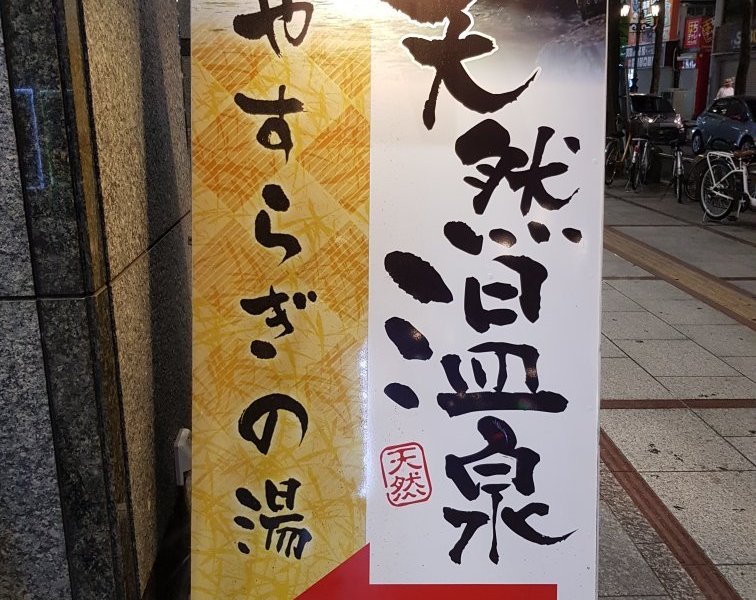 天然温泉
天然
やすらぎの湯